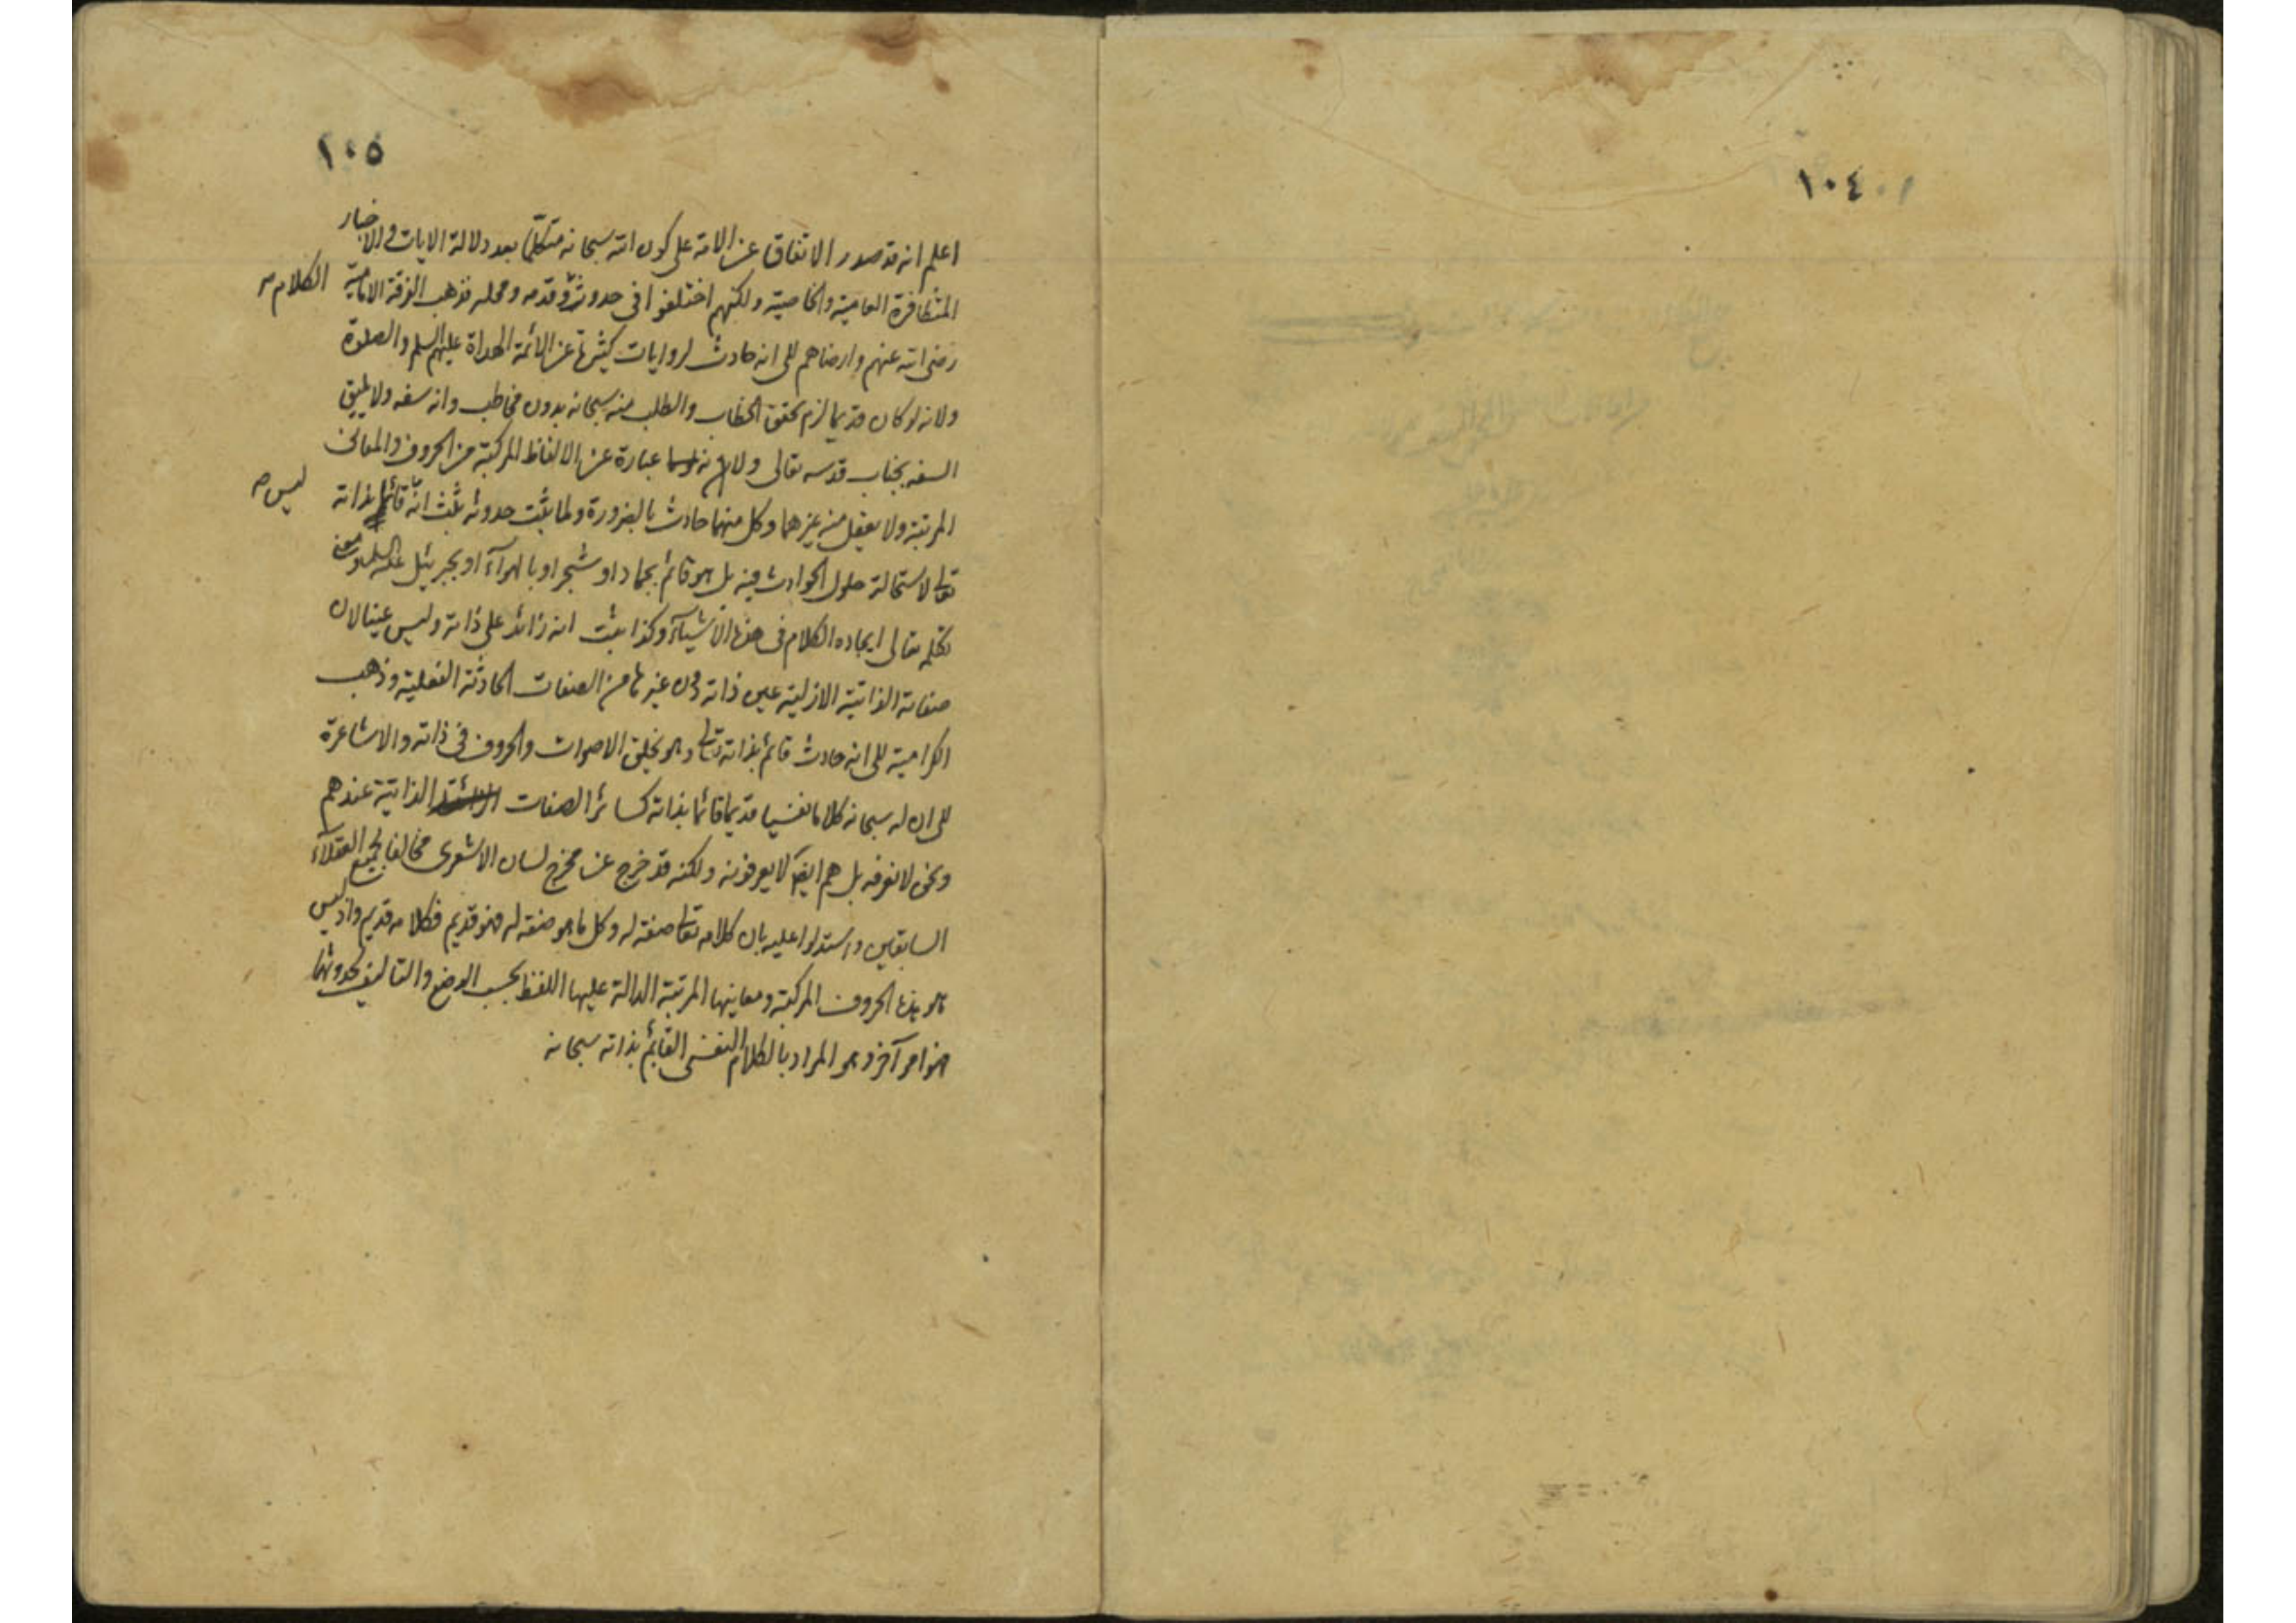 ١٠٤
١٠٥
اعلم انه قد صدر الاتفاق عن الامة على كون الله سبحانه متكلما بعد دلالة الايات و الاخبار
المتظافرة العامية والخاصية ولكنهم اختلفوا فى حدوثه وقدمه ومحله فذهب الفرقة الامامية
الكلام
رضى الله عنهم وارضاهم الى انه حادث لروايات كثيرة عن الائمة الهداة عليهم السلم والصلوة
ولانه لو كان قديما لزم تحقق الخطاب والطلب منه سبحانه بدون مخاطب وانه سفه ولا يليق
السفه بجناب قدسه تعالى ولان عبارة عن الالفاظ المركبة من الحروف والمعانى
المرتبة ولا يعقل منه غيرهما وكل منهما حادث بالضرورة ولما ثبت حدوثه ثبت انه قائما بذاته
ليس
تعالى لاستحالة حلول الحوادث فيه بل هو قائم بجماد او شجر او بالهوآء او بجبرئيل عليه السلم ومعنى
تكلمه تعالى ايجاده الكلام فى هذه الاشيآء وكذا ثبت انه زائد على ذاته وليس عينا لان
صفاته الذاتية الازلية عين ذاته دون غيرها من الصفات الحادثة الفعلية وذهب
الكرامية الى انه حادث قائم بذاته تعالى وهو يخلق الاصوات والحروف فى ذاته والاشاعرة
الى ان له سبحانه كلاما نفسيا قديما قائما بذاته كسائر الصفات الذاتية عندهم
ونحن لا نعرفه بل هم ايضا لا يعرفونه ولكنه قد خرج عن مخرج لسان الاشعرى مخالفا لجميع العقلآء
السابقين واستدلوا عليه بان كلامه تعالى صفته له وكل ما هو صفته له فهو قديم فكلامه قديم واذ ليس
هو بهذه الحروف المركبة ومعاينها المرتبة الدالة عليها اللفظ بحسب الوضع والتاليف لحدوثهما
فهو امر آخر وهو المراد بالكلام النفسى القائم بذاته سبحانه